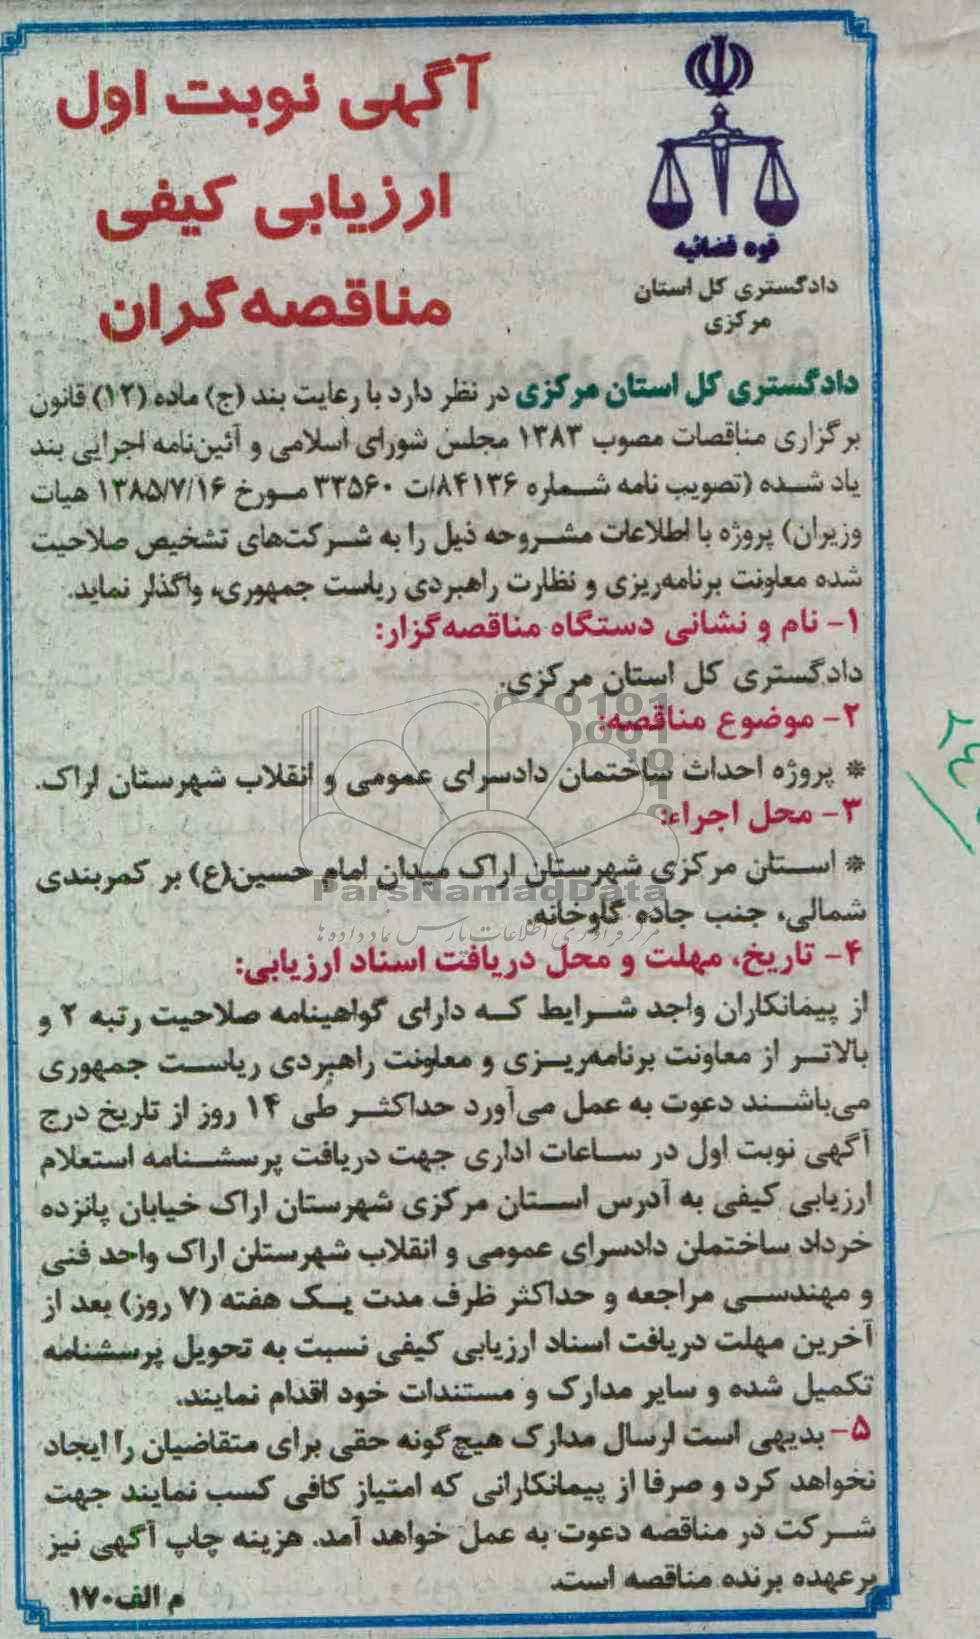 آگهی نوبت اول
ارزیابی کیفی
مناقصه‌گران
قوه قضائیه
دادگستری کل استان
مرکزی
دادگستری کل استان مرکزی در نظر دارد با رعایت بند (ج) ماده (۱۲) قانون
برگزاری مناقصات مصوب ۱۳۸۳ مجلس شورای اسلامی و آئین‌نامه اجرایی بند
یاد شده (تصویب نامه شماره ۸۴۱۳۶/ت ۳۳۵۶۰ مورخ ۱۳۸۵/۷/۱۶ هیات
وزیران) پروژه با اطلاعات مشروحه ذیل را به شرکت‌های تشخیص صلاحیت
شده معاونت برنامه‌ریزی و نظارت راهبردی ریاست جمهوری، واگذار نماید.
۱- نام و نشانی دستگاه مناقصه‌گزار:
دادگستری کل استان مرکزی.
۲- موضوع مناقصه:
* پروژه احداث ساختمان دادسرای عمومی و انقلاب شهرستان اراک.
۳- محل اجراء:
* استان مرکزی شهرستان اراک میدان امام حسین(ع) بر کمربندی
ParsNamadData
شمالی، جنب جاده گاوخانه.
مرکز فرآوری اطلاعات پارس نماد داده ها
۴- تاریخ، مهلت و محل دریافت اسناد ارزیابی:
از پیمانکاران واجد شرایط که دارای گواهینامه صلاحیت رتبه ۲ و
بالاتر از معاونت برنامه‌ریزی و معاونت راهبردی ریاست جمهوری
می‌باشند دعوت به عمل می‌آورد حداکثر طی ۱۴ روز از تاریخ درج
آگهی نوبت اول در ساعات اداری جهت دریافت پرسشنامه استعلام
ارزیابی کیفی به آدرس استان مرکزی شهرستان اراک خیابان پانزده
خرداد ساختمان دادسرای عمومی و انقلاب شهرستان اراک واحد فنی
و مهندسی مراجعه و حداکثر ظرف مدت یک هفته (۷ روز) بعد از
آخرین مهلت دریافت اسناد ارزیابی کیفی نسبت به تحویل پرسشنامه
تکمیل شده و سایر مدارک و مستندات خود اقدام نمایند.
۵- بدیهی است ارسال مدارک هیچ‌گونه حقی برای متقاضیان را ایجاد
نخواهد کرد و صرفا از پیمانکارانی که امتیاز کافی کسب نمایند جهت
شرکت در مناقصه دعوت به عمل خواهد آمد. هزینه چاپ آگهی نیز
برعهده برنده مناقصه است.
م الف۱۷۰